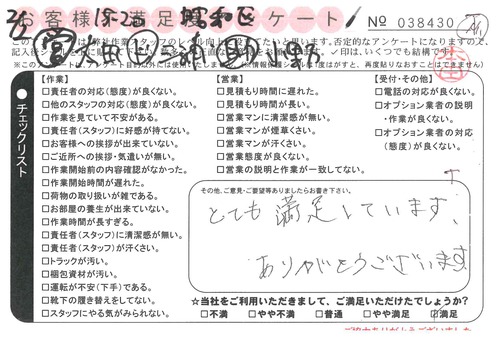 お客様 満足 アンケート
昭和区
№ 038430
このアンケートは弊社作業スタッフのレベル向上
なアンケートになりますので、
記入後シール
いくつでも結構です。
※このアンケートは
(※情報保護シール1度はがすと、再度貼りなおすことはできません)
チェックリスト
【作業】
□責任者の対応(態度)が良くない。
□他のスタッフの対応(態度)が良くない。
□作業を見ていて不安がある。
□責任者(スタッフ)に好感が持てない。
□お客様への挨拶が出来ていない。
□ご近所への挨拶・気遣いが無い。
□作業開始前の内容確認がなかった。
□作業開始時間が遅れた。
□荷物の取り扱いが雑である。
□お部屋の養生が出来ていない。
□作業時間が長すぎる。
□責任者(スタッフ)に清潔感が無い。
□責任者(スタッフ)が汗くさい。
□トラックが汚い。
□梱包資材が汚い。
□運転が不安(下手)である。
□靴下の履き替えをしてない。
□スタッフにやる気がみられない。
【営業】
□見積もり時間に遅れた。
□見積もり時間が長い。
□営業マンに清潔感が無い。
□営業マンが煙草くさい。
□営業マンが汗くさい。
□営業態度が良くない。
□営業の説明と作業が一致してない。
【受付・その他】
□電話の対応が良くない。
□オプション業者の説明
・作業が良くない。
□オプション業者の対応
(態度)が良くない。
その他、ご意見・ご要望等ありましたらお書き下さい。
とても満足しています、
ありがとうございます
☆当社をご利用いただきまして、ご満足いただけたでしょうか?
□不満 □やや不満 □普通 □やや満足 □満足
ご協力ありがとうございました